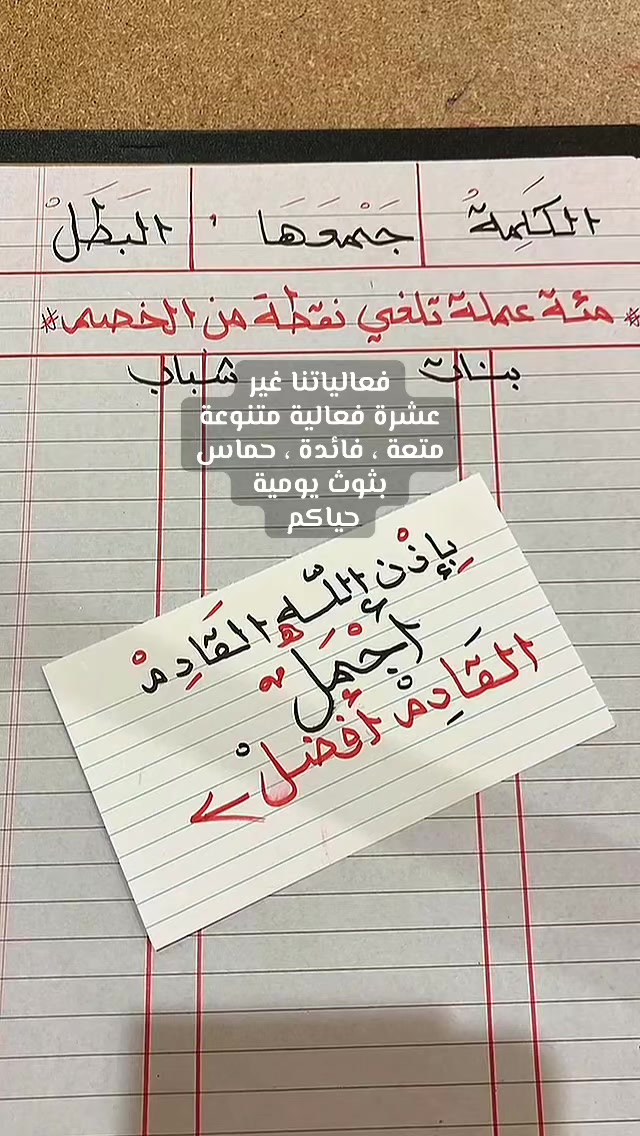 الكَلِمةُ جَمْعَهَا البَطَلْ
* مئة عملة تلغي نقطة من الخصم *
بنات شباب
فعالياتنا غير
عشرة فعالية متنوعة
متعة ، فائدة ، حماس
بثوث يومية
حياكم
بِإذْنِ اللّٰه القَادِمْ
أجْمَلْ
القَادِمْ أفضلْ